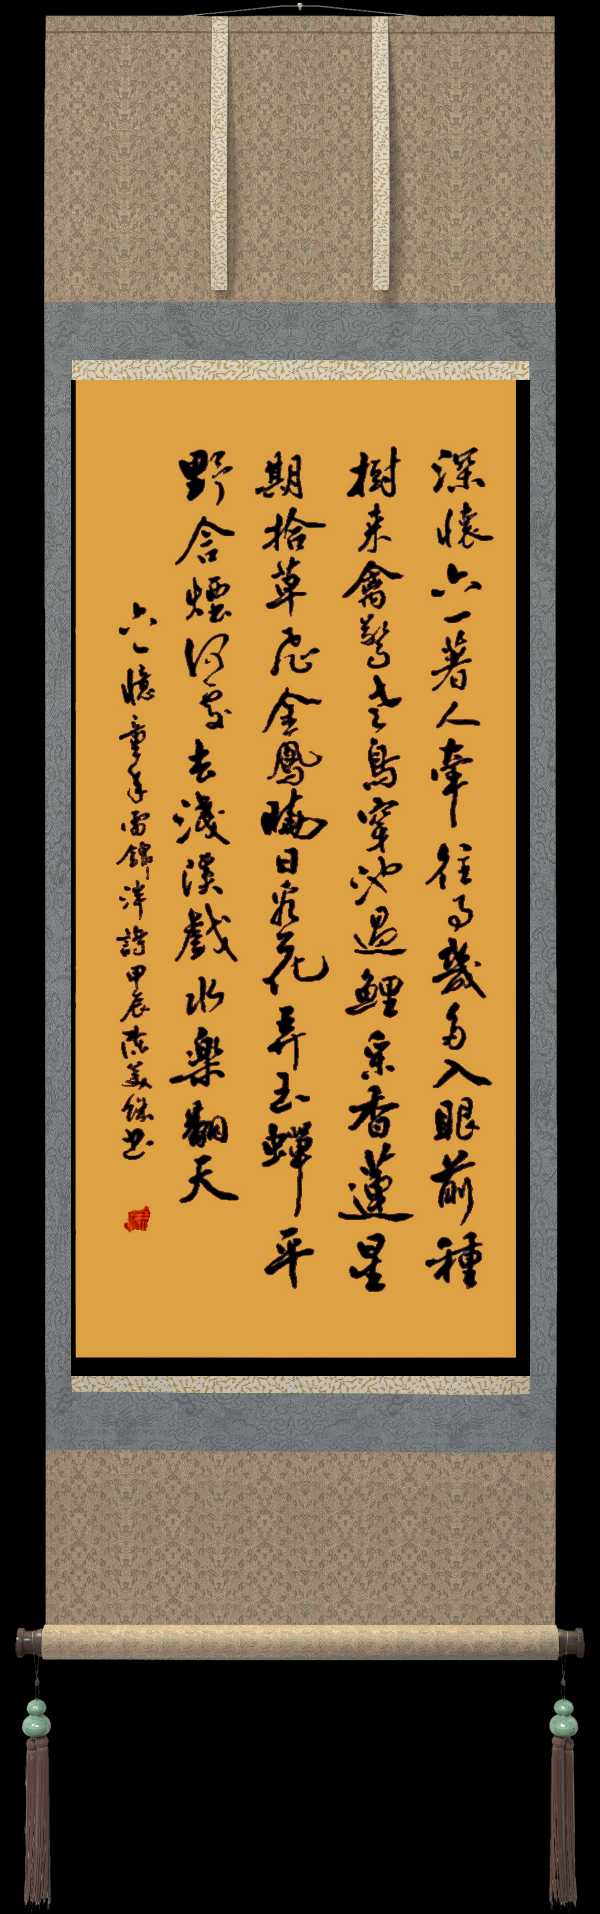 深懷六一著人牽往事幾多入眼前種
樹来禽驚老鳥穿池過鯉采香蓮星
期拾草飛金鳳日花弄玉蟬平
野含煙何處去淺溪戲水樂翻天
六一憶童年雷錦泮詩甲辰美書